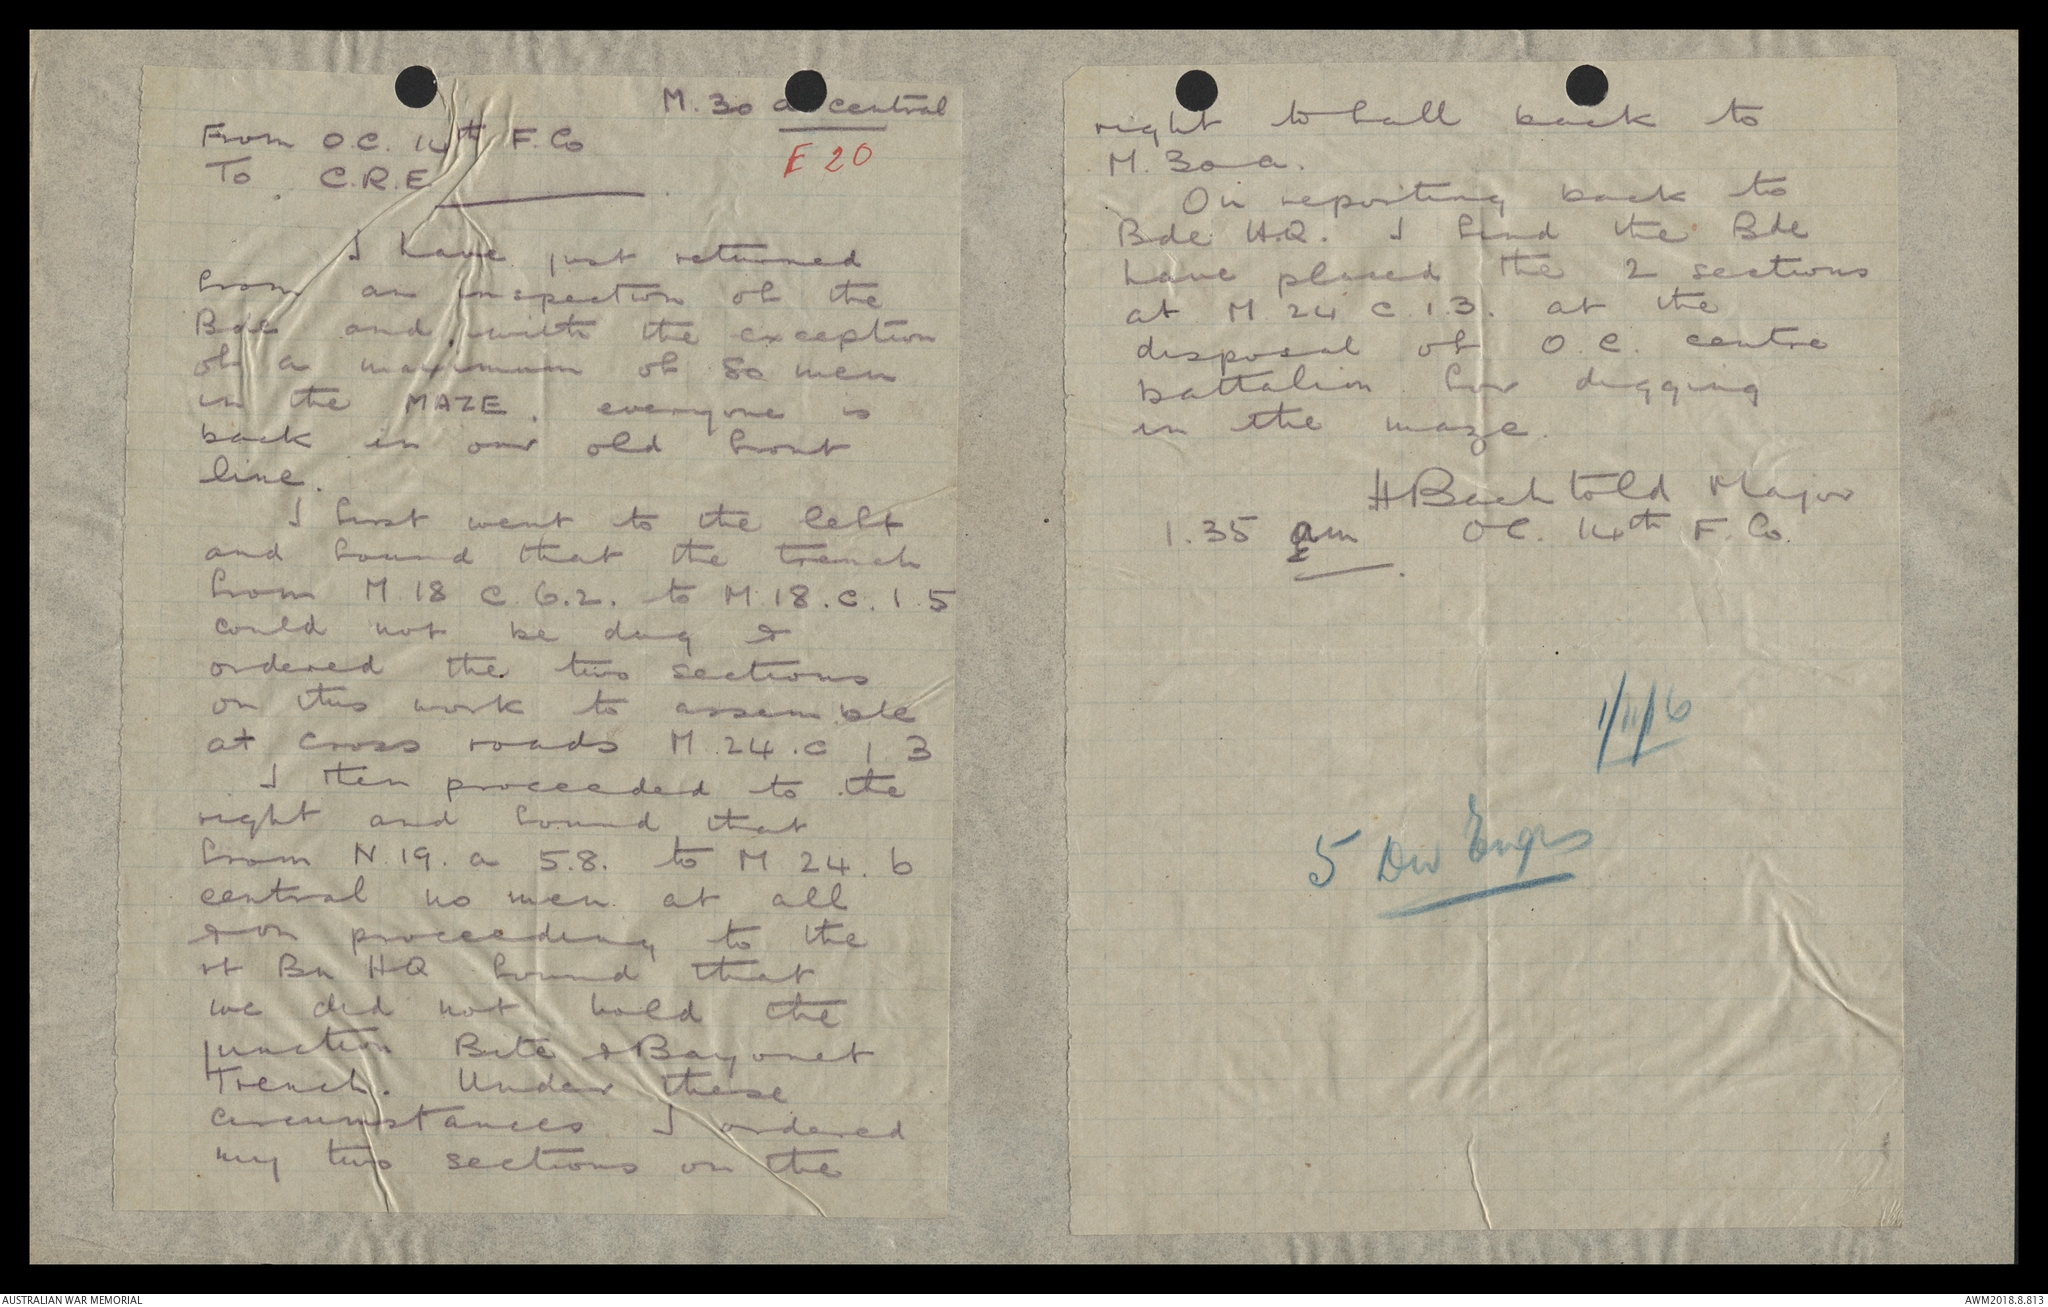 M. 30 a central
From O.C. 14th F. Co
E 20
To C.R.E.
I have just returned
from an inspection of the
Bde and with the exception
of a maximum of 80 men
in the MAZE. everyone is
back in our old front
line.
I first went to the left
and found that the trench
from M 18 c. 6.2. to M. 18. c. 1 5
could not be dug &
ordered the two sections
on this work to assemble
at cross roads M. 24. c 1 3
I then proceeded to the
right and found that
from N. 19. a 5.8. to M 24. b
central no men at all
& on proceeding to the
rt Bn HQ found that
we did not hold the
junction Bite & Bayonet
Trench. Under these
circumstances I ordered
my two sections on the
right to fall back to
M. 30 a.
On reporting back to
Bde H.Q. I find the Bde
have placed the 2 sections
at M 24 c. 1 3. at the
disposal of O.C. centre
battalion for digging
in the maze.
H Bachtold Major
1.35 am OC. 14th F. Co.
1/11/16
5 Div Engrs
AUSTRALIAN WAR MEMORIAL
AWM2018.8.813